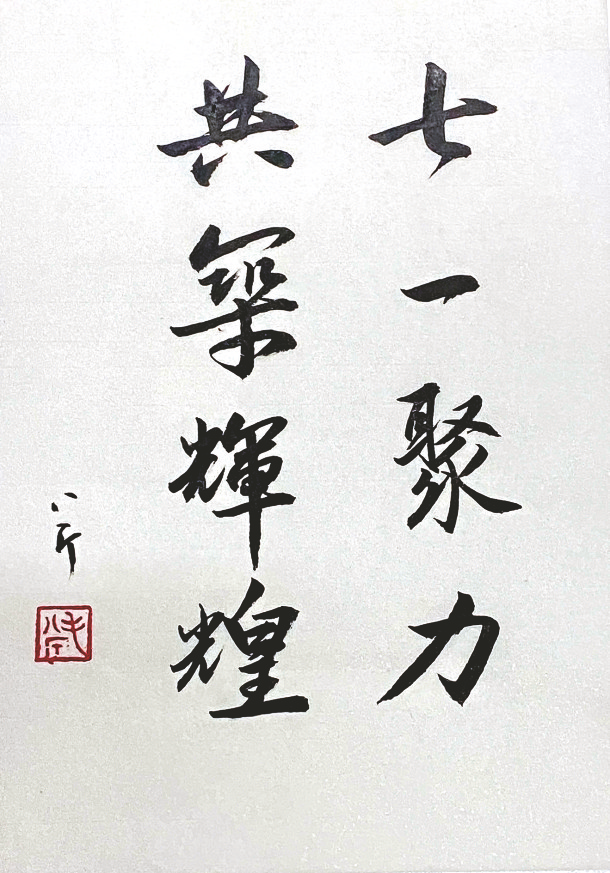 七一聚力
共築輝煌
八斤